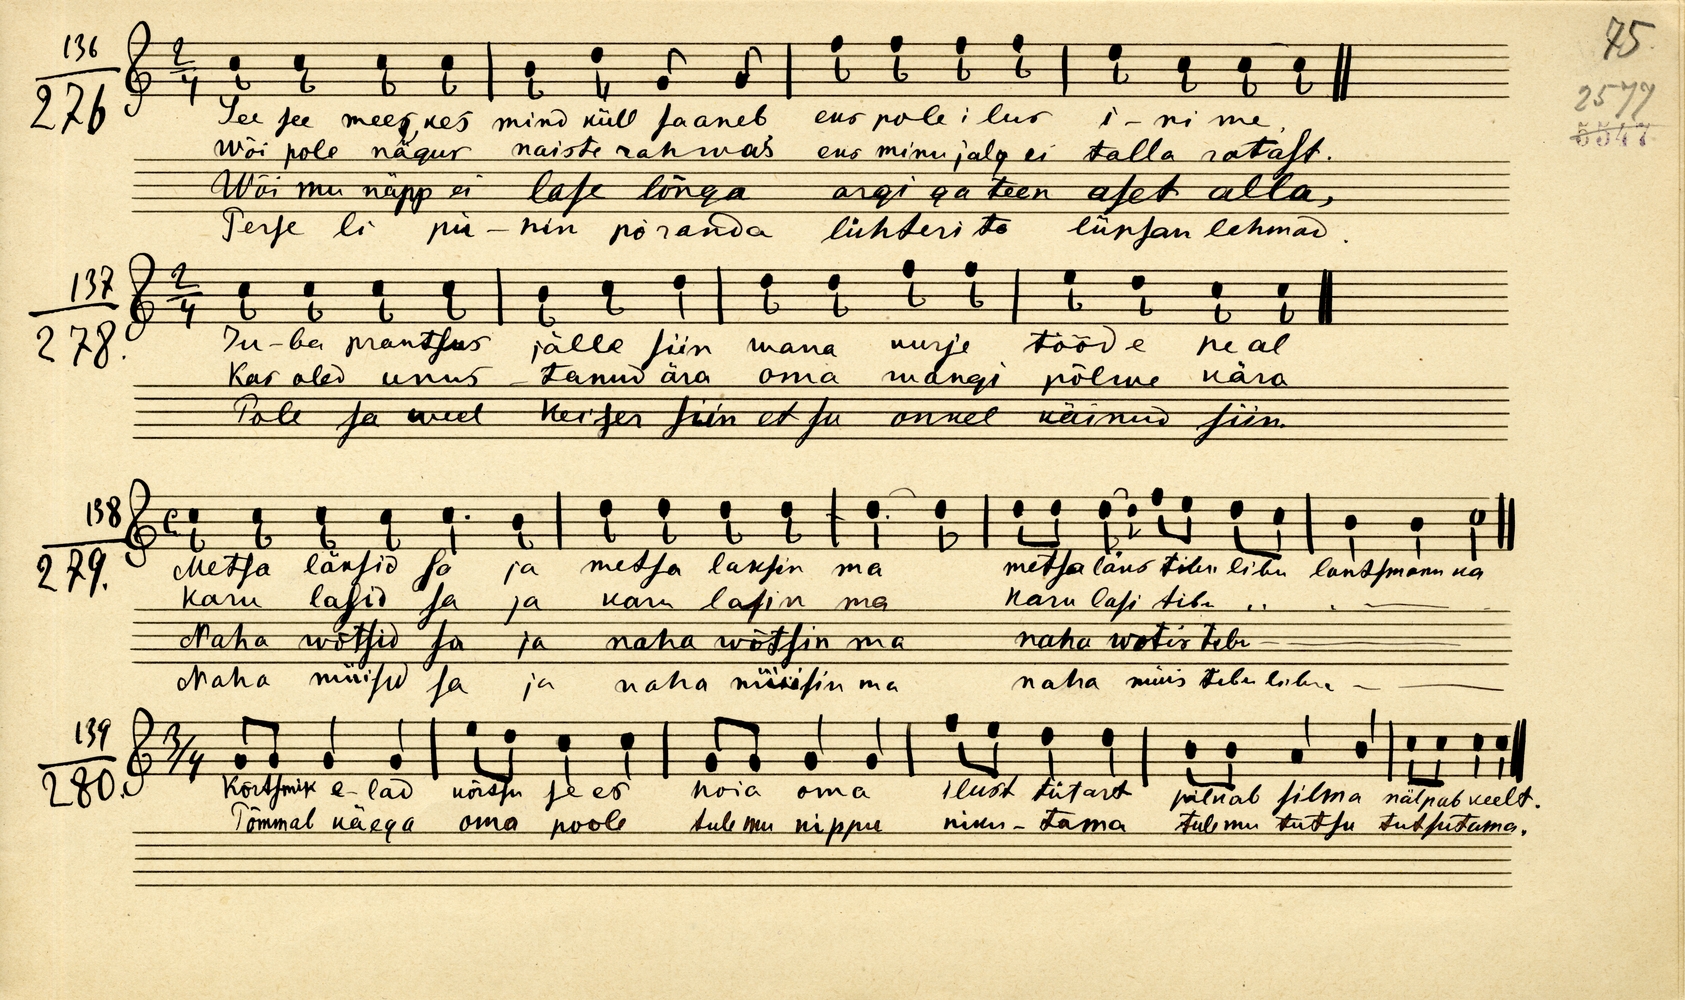 75.
2577
5547
136
276
2/4
See see mees, kes mind küll saaneb eks pole ilus i-ni me,
Wõi pole nägus naisterahwas eks minu jalg ei talla ratast.
Wõi mu näpp ei lase lõnga argi ga teen aset alla,
Perse li pü-nin põranda lühteri to lüpsan lehmad.
137
278.
2/4
Ju-ba prantsus jälle siin wana kurje tööde peal
Kas oled unus-tanud ära oma mangi põlwe kära
Pole sa weel Keiser siin et su onkel käinud siin.
138
279.
C
Metsa läksid sa ja metsa laksin ma metsa läks tibu libu lantsmanni ka
Karu lasid sa ja karu lasin ma Karu lasi tibu „ . —
Naha wõtsid sa ja naha wõtsin ma naha wotis tebu —
Naha müisid sa ja naha müisin ma naha müis tebu libu - —
139
280.
3/4
Kõrtsmik e-lad kõrtsu sees hoia oma ilust tütart pilkab silma nälpab keelt.
Tõmmal käega oma poole tule mu nippu niku-tama tule mu tutsu tutsutama.